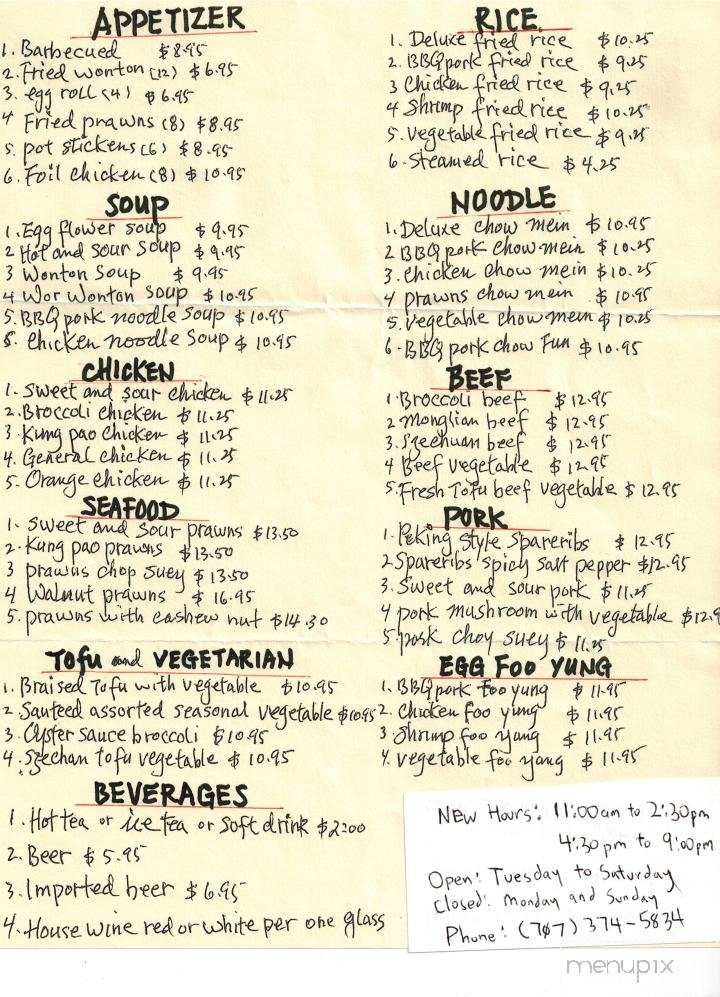 APPETIZER
1. Barbecued $8.95
2. Fried wonton (12) $6.95
3. egg roll (4) $6.95
4 Fried prawns (8) $8.95
5. pot stickens (6) $8.95
6. Foil chicken (8) $10.95
SOUP
1. Egg flower soup $9.95
2 Hot and sour soup $9.95
3 Wonton Soup $9.95
4 Wor Wonton Soup $10.95
5. BBQ pork noodle Soup $10.95
6. Chicken noodle Soup $10.95
CHICKEN
1. Sweet and sour chicken $11.25
2. Broccoli chicken $11.25
3. Kung pao chicken $11.25
4. General chicken $11.25
5. Orange chicken $11.25
SEAFOOD
1. Sweet and Sour prawns $13.50
2. Kung pao prawns $13.50
3 prawns chop suey $13.50
4 Walnut prawns $16.95
5. prawns with cashew nut $14.30
TOFU and VEGETARIAN
1. Braised Tofu with vegetable $10.95
2 Sauteed assorted seasonal vegetable $10.95
3. Oyster sauce broccoli $10.95
4. Szechan tofu vegetable $10.95
BEVERAGES
1. Hot tea or ice tea or soft drink $2.00
2. Beer $5.95
3. Imported beer $6.95
4. House wine red or white per one glass
RICE
1. Deluxe fried rice $10.25
2. BBQ pork fried rice $9.25
3 Chicken fried rice $9.25
4 Shrimp fried rice $10.25
5. vegetable fried rice $9.25
6. Steamed rice $4.25
NOODLE
1. Deluxe chow mein $10.95
2 BBQ pork chow mein $10.25
3. chicken chow mein $10.25
4 prawns chow mein $10.95
5. vegetable chow mein $10.25
6. BBQ pork chow Fun $10.95
BEEF
1. Broccoli beef $12.95
2 Monglian beef $12.95
3. Szechuan beef $12.95
4 Beef vegetable $12.95
5. Fresh Tofu beef vegetable $12.95
PORK
1. Peking Style Spareribs $12.95
2 Spareribs spicy salt pepper $12.95
3. Sweet and sour pork $11.25
4 pork mushroom with vegetable $12.9
5. pork choy suey $11.25
EGG FOO YUNG
1. BBQ pork Foo yung $11.95
2. Chicken foo yung $11.95
3. Shrimp foo yung $11.95
4. vegetable foo yung $11.95
New Hours: 11:00am to 2:30pm
4:30 pm to 9:00pm
Open: Tuesday to Saturday
Closed: Monday and Sunday
Phone: (707) 374-5834
menupix